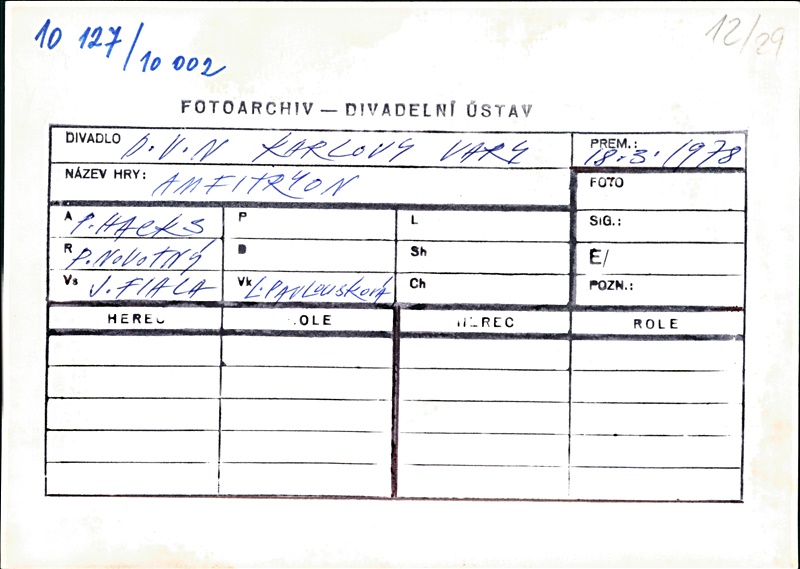 10 127/10 002
12/29
FOTOARCHIV — DIVADELNÍ ÚSTAV
DIVADLO D.V.N KARLOVY VARY
PREM.: 18.3.1978
NÁZEV HRY: AMFITRYON
FOTO
A P. HACKS P L
SIG.:
R P. NOVOTNÝ D Sh
E/
Vs J. FIALA Vk L. PAVLOUSKOVÁ Ch
POZN.:
HEREC ROLE HEREC ROLE